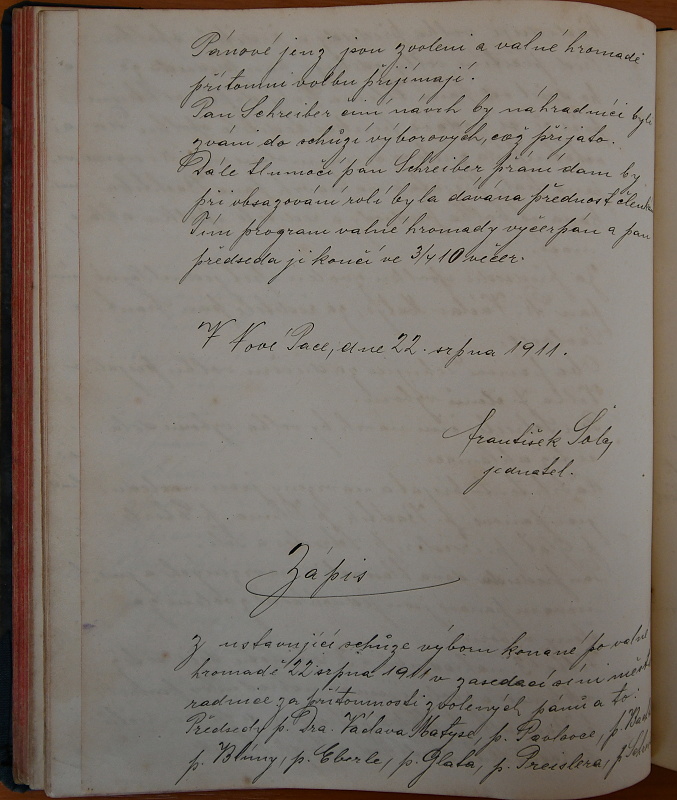 Pánové jenž jsou zvoleni a valné hromadě
přítomni volbu přijímají.
Pan Schreiber činí návrh by náhradníci byli
zváni do schůzí výborových, což přijato.
Dále tlumočí pan Schreiber přání dam by
při obsazování rolí byla dávána přednost
Tím program valné hromady vyčerpán a pan
předseda ji končí ve 3/4 10 večer.
V Nové Pace, dne 22. srpna 1911.
František
jednatel.
Zápis
z ustavující schůze výboru konané po valné
hromadě 22 srpna 1911 v zasedací síni
radnice za přítomnosti zvolených pánů a to:
Předsedy p. Dra. Václava Matyse, p. Pavlovce, p.
p. Blůny, p. Eberle, p. Glata, p. Preislera, p.